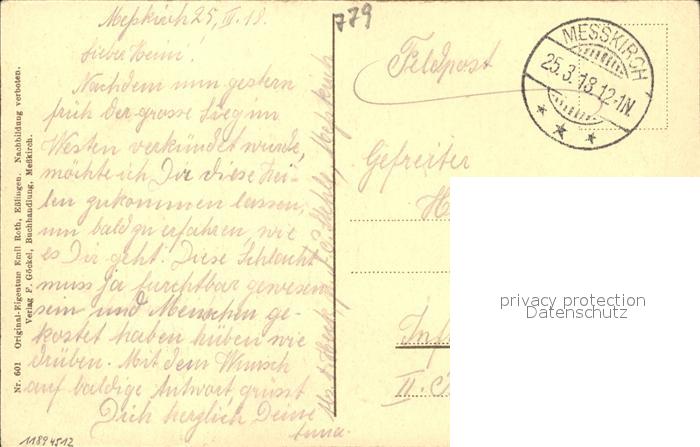 Meßkirch 25. III. 18.
Lieber Heini!
Nachdem nun gestern
früh der grosse Sieg im
Westen verkündet wurde,
möchte ich Dir diese Zei-
len zukommen lassen,
um bald zu erfahren, wie
es Dir geht. Diese Schlacht
muss ja furchtbar gewesen
sein und Menschen ge-
kostet haben hüben wie
drüben. Mit dem Wunsch
auf baldige Antwort grüsst
Dich herzlich Deine
Anna.
Meßkirch
Nr. 601 Original-Eigentum Emil Roth, Eßlingen. Nachbildung verboten.
Verlag F. Göckel, Buchhandlung, Meßkirch.
11894512
779
Feldpost
MESSKIRCH
25.3.18.12-1N.
Gefreiter
H
Inf
II.
privacy protection
Datenschutz